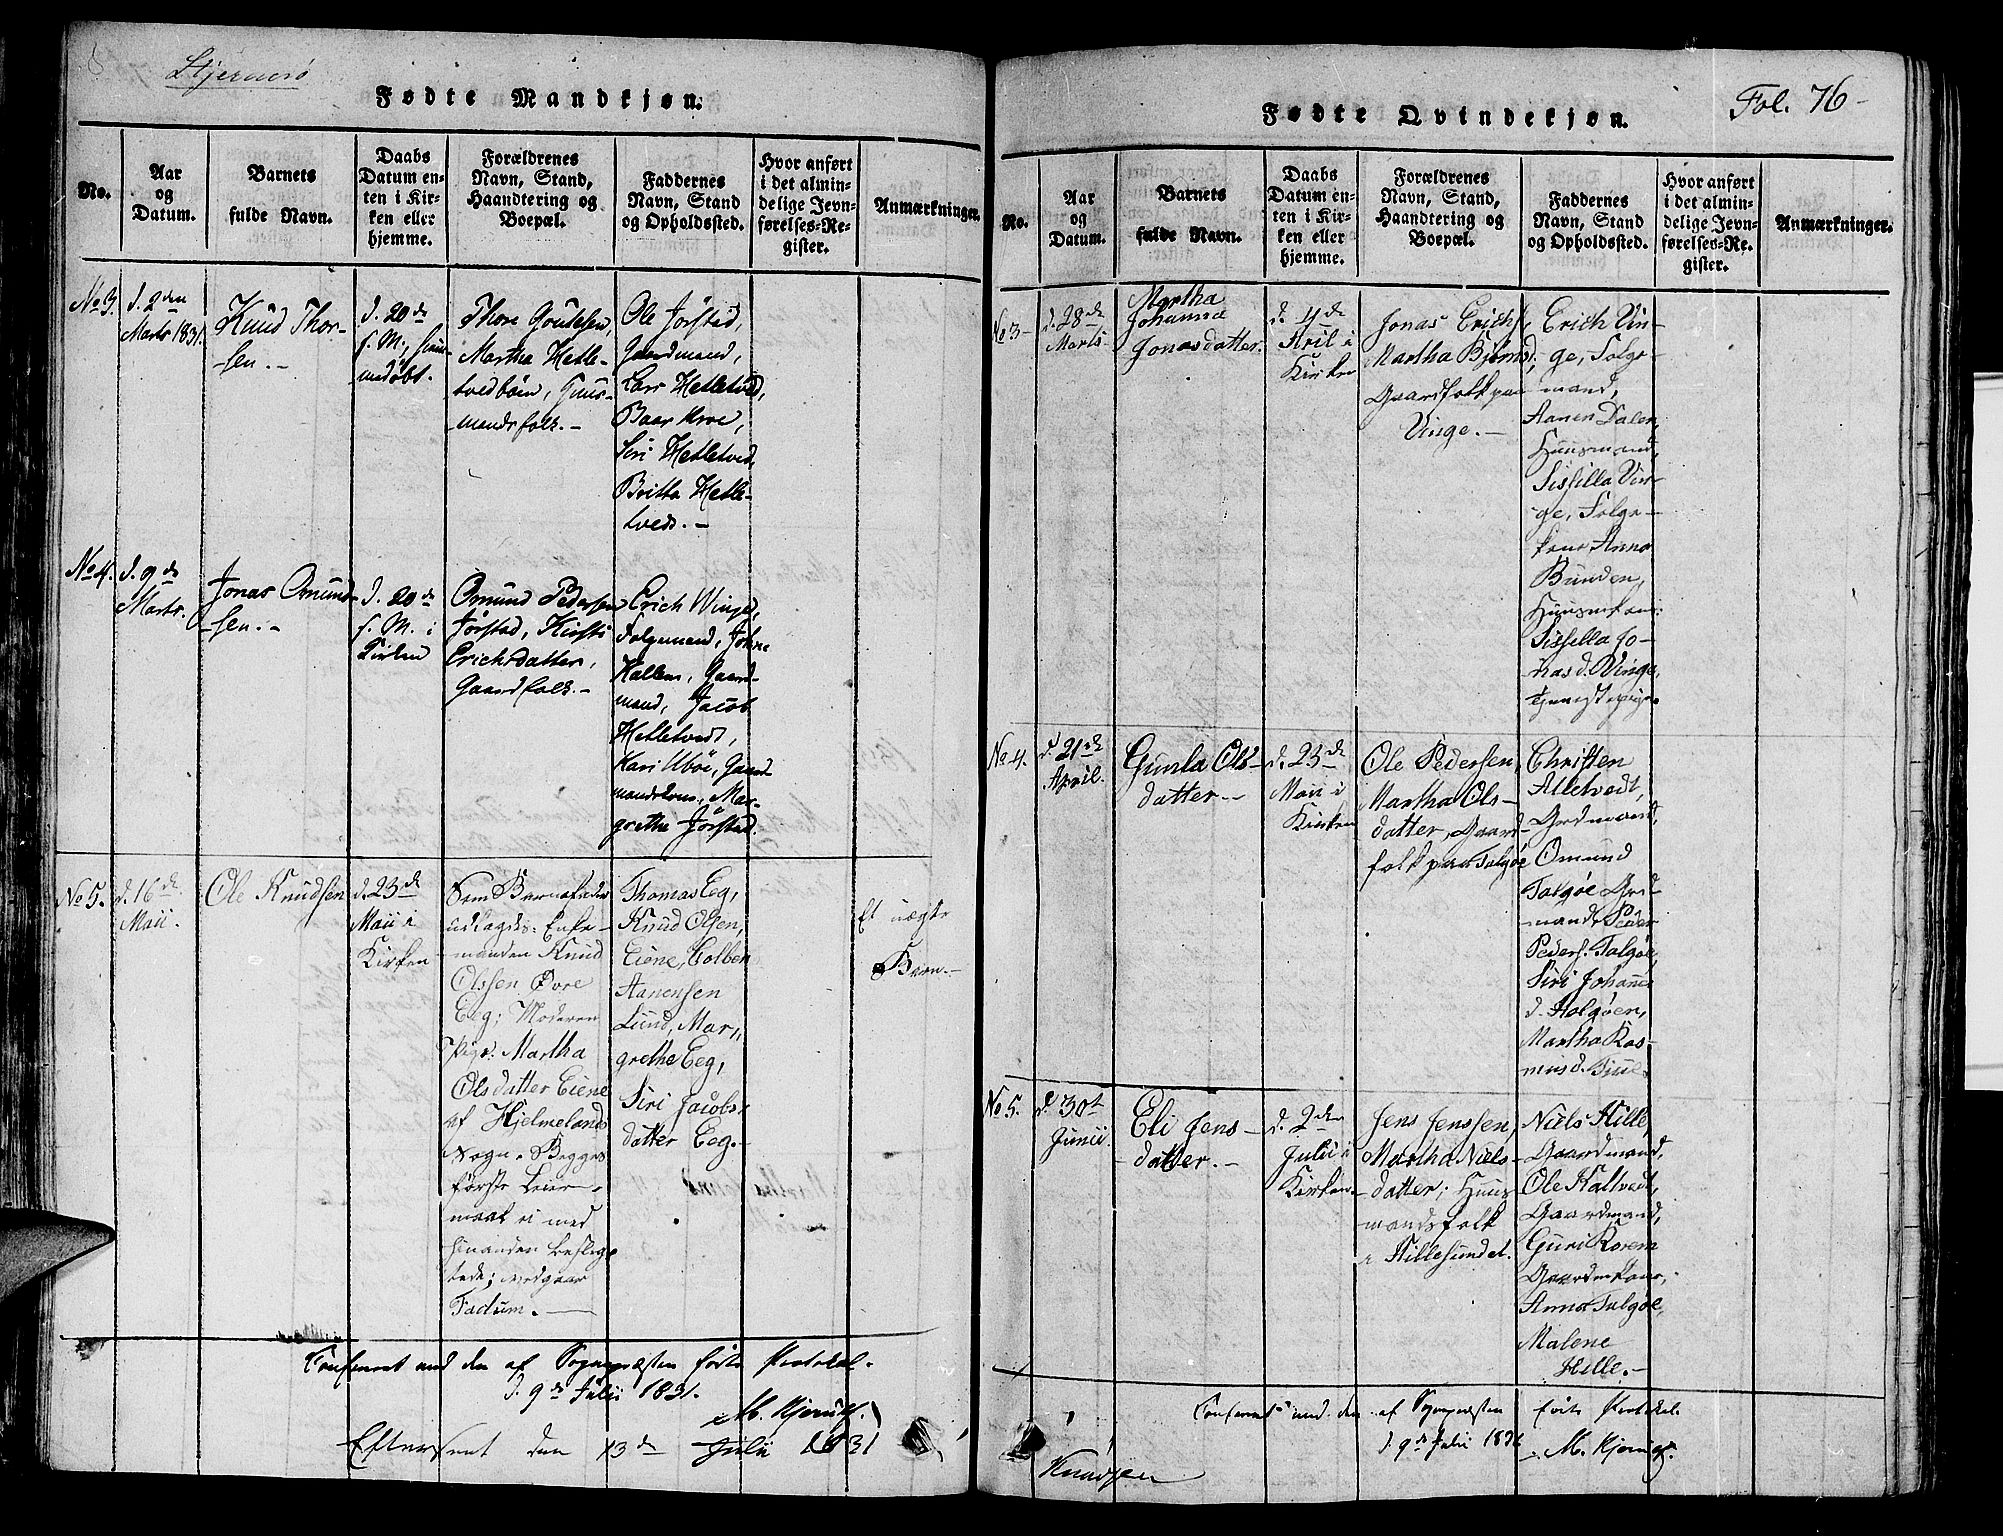 Stjernerö
Fødte Mandkjøn.
No.
Aar
og
Datum.
Barnets
fulde Navn.
Daabs
Datum en-
ten i Kir-
ken eller
hjemme.
Forældrenes
Navn, Stand,
Haandtering og
Boepæl.
Faddernes
Navn, Stand
og Opholdssted.
Hvor anført
i det almin-
delige Jevn-
førelses-Re-
gister.
Anmærkninger.
No 3.
d. 2den
Marts 1831.
Knud Thor-
sen.-
d. 20de
s. M.,
Thore
Martha Hetle-
tvedböen, Huus-
mandsfolk.-
Ole Jörstad,
Gaardmand,
Lars Hetletvéd,
Baar Kroe,
Siri Hetletved,
Britta Hetle-
tvedt.-
No 4.
d. 9de
Marts.
Jonas Omund-
sen.-
d. 20de
s. M. i
Kirken
Omund Pedersen
Jörstad, Kirsti
Erichsdatter,
Gaardfolk.-
Erich Winge,
Folgemand, Johne
Hallem, Gaard-
mand, Jacob
Hetletvedt,
Kari Uböe, Gaard
mandskone, Mar-
grethe Jörstad.
No 5.
d. 16de
Maii.
Ole Knudsen
d. 23de
Maii i
Kirken
Som Barnefader
udlagdes: Enke-
manden Knud
Olssen Övre
Eeg; Moderen
Pige Martha
Olsdatter Eiene
af Hjelmelands
Sogn. Begges
förste Leier-
maal ei med
hinanden Besleg-
tede; vedgaar
Factum.
Thomas Eeg,
Knud Olsen,
Eiene, Colben
Aanensen
Lund, Mar,
grethe Eeg,
Siri Jacobs-
datter Eeg.-
Et uægte
Barn.-
Confereret med den af Sognepræsten förte Protokol.
d. 9de Julii 1831.
M. Kjerulf.
Efterseet den 13de Julii 1831
Fol. 76-
Fødte Qvindekjøn.
No.
Aar
og
Datum.
Barnets
fulde Navn.
Daabs
Datum en-
ten i Kir-
ken eller
hjemme.
Forældrenes
Navn, Stand,
Haandtering og
Boepæl.
Faddernes
Navn, Stand
og Opholdssted.
Hvor anført
i det almin-
delige Jevn-
førelses-Re-
gister.
Anmærkninger.
No 3-
d. 28de
Marts
Martha
Johanna
Jonasdatter.
d. 4de
Aril i
Kirken
Jonas Erichs,
Martha Björnsd,
Gaardfolk paa
Vinge.-
Erich Vin-
ge, Folge-
mand,
Aanen Dalen,
Huusmand,
Sissilla Vin-
ge, Folge-
kone Anna
Bunden,
Huusmkone
Sissella Jo-
nasd. Vinge,
Tjenestepige.
No 4.
d. 21de
April.
Gunla Ols-
datter.-
d. 23de
Maii i
Kirken
Ole Pedersen,
Martha Ols-
datter, Gaard-
folk paa Talgöe
Christen
Alletvedt,
Grdmand,
Omund
Talgöe Grd-
mand, Peder
Peders. Talgöe,
Siri Johann
d. Halgöen,
Martha Ras-
musd.
No 5.
d. 30t
Junii.
Eli Jens-
datter.-
d. 2den
Julii i
Kirken.
Jens Jenssen,
Martha Niels-
datter; Huus
mandsfolk
i Hillesundet.
Niels Hille,
Gaardmand,
Ole Haltvedt,
Gaardmand,
Guri Rorem
Gaardmkone,
Anna Talgöe,
Malene
Hille.-
Confereret med den af Sognepræsten förte Protokol.
d. 9de Julii 1831
M. Kjerulf.
Knudsen